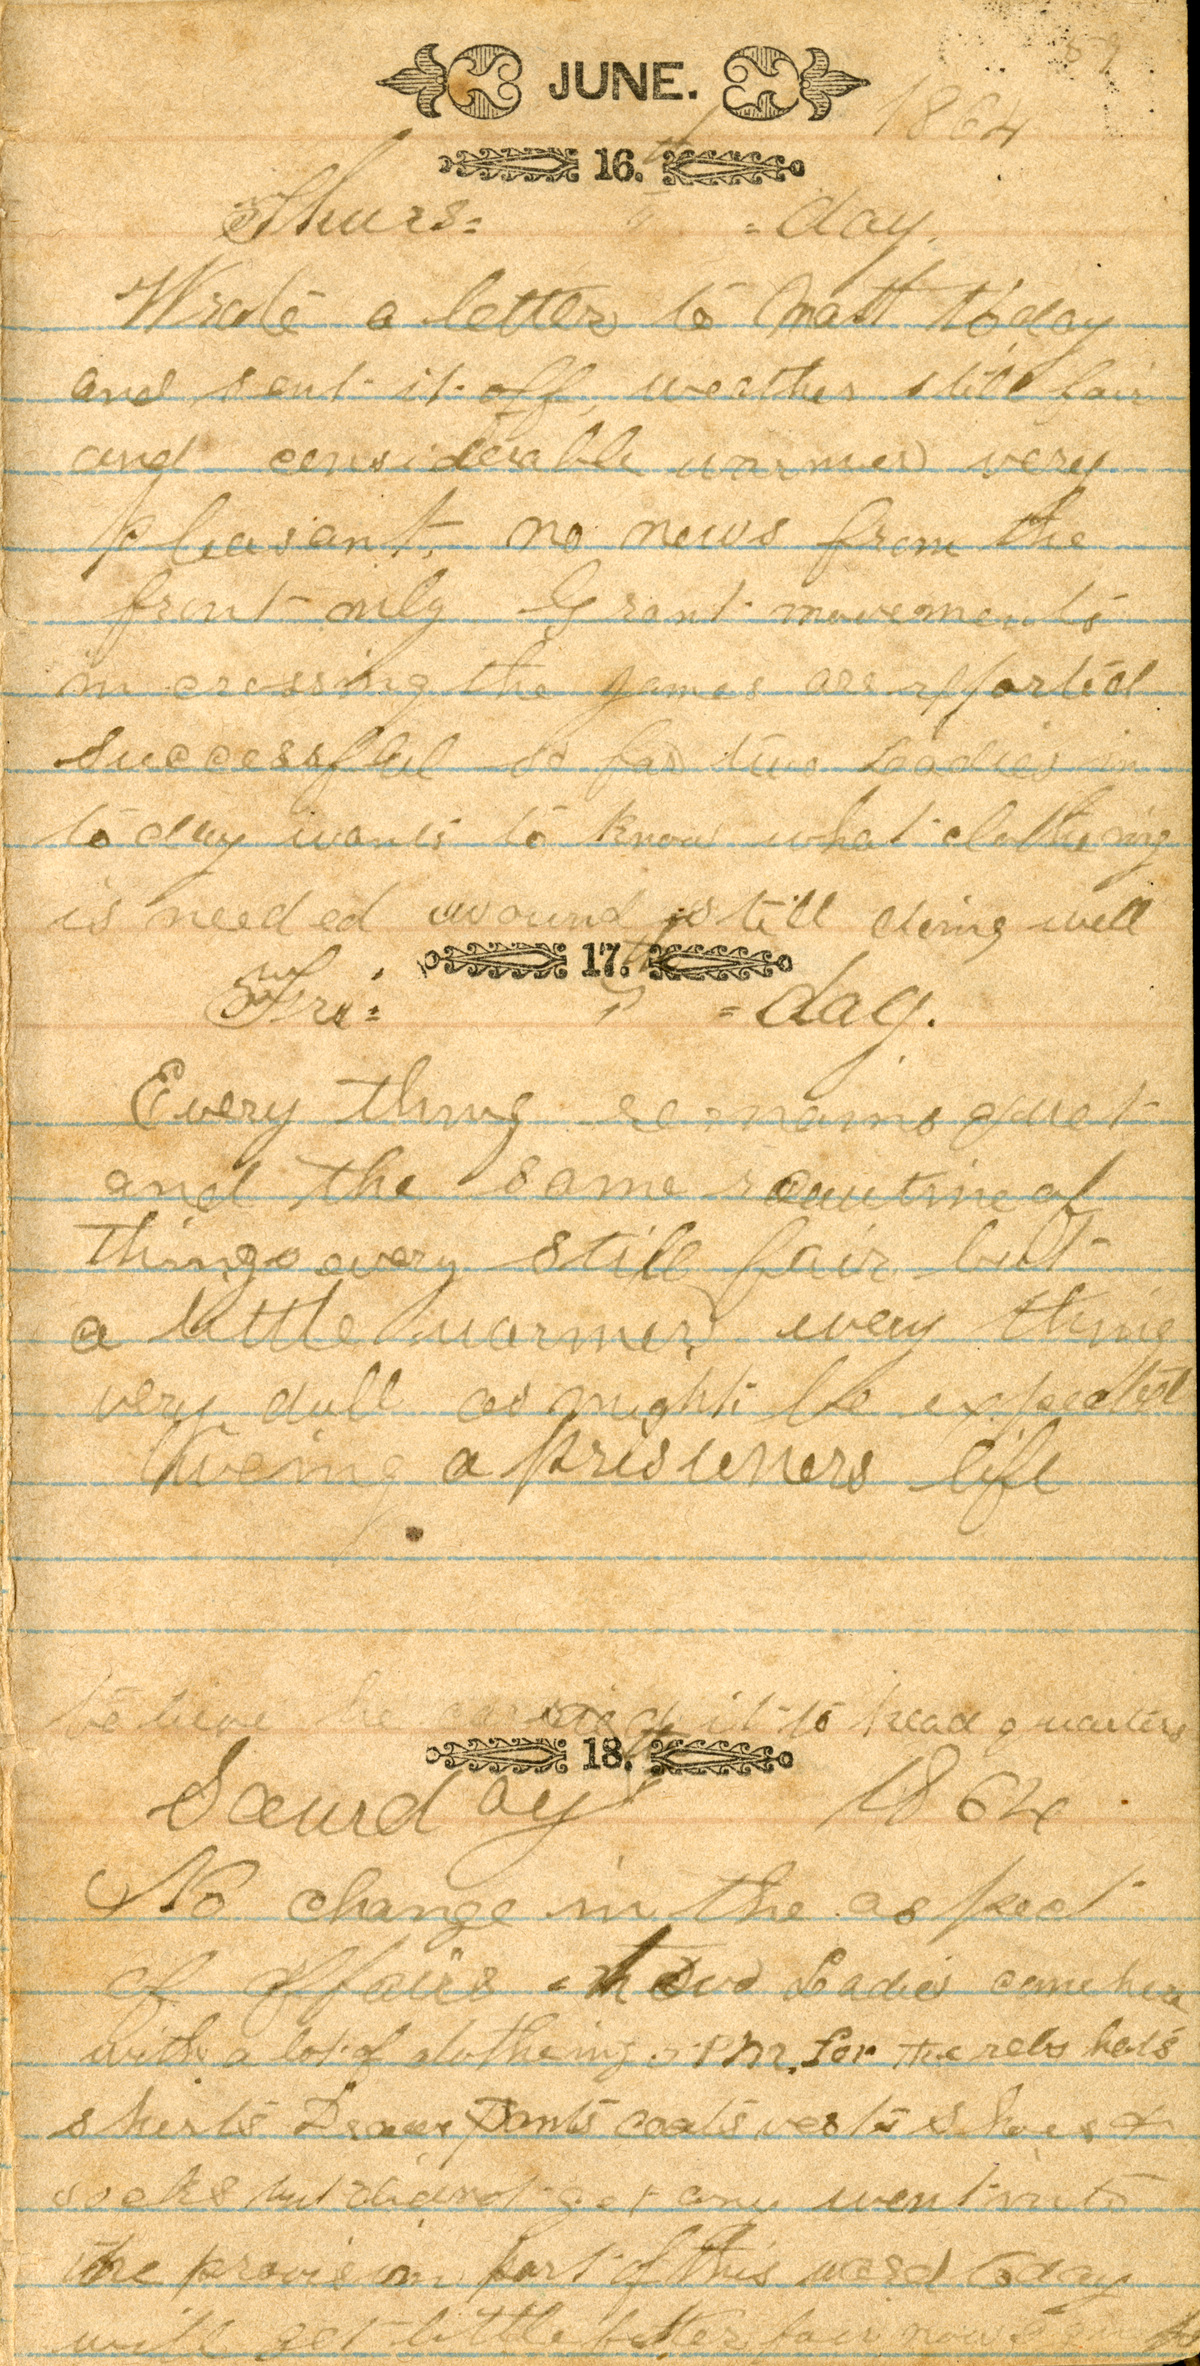 JUNE.
1864
16.th
Thurs= =day.
Wrote a letter to Matt today
and sent it off, weather still fair
and considerable warmer very
pleasant, no news from the
front only Grant movements
in crossing the James are reported
successful so far two Ladies in
today wants to know what clothing
is needed wound is still doing well
17.th
Fri= =day.
Every thing remains quiet
and the same routine of
things every still fair but
a little warmer every thing
very dull as might be expected
liveing a prisuners life
he carried it to head quarters
18.th
Saurday 1864
No change in the aspect
of affairs two Ladies come here
with a lot of clotheing PM. for the rebs hats
sherts Drawers Pants coats vests shoes &
socks but did not get any went into
the provision part of this ward today
will get little better fair now